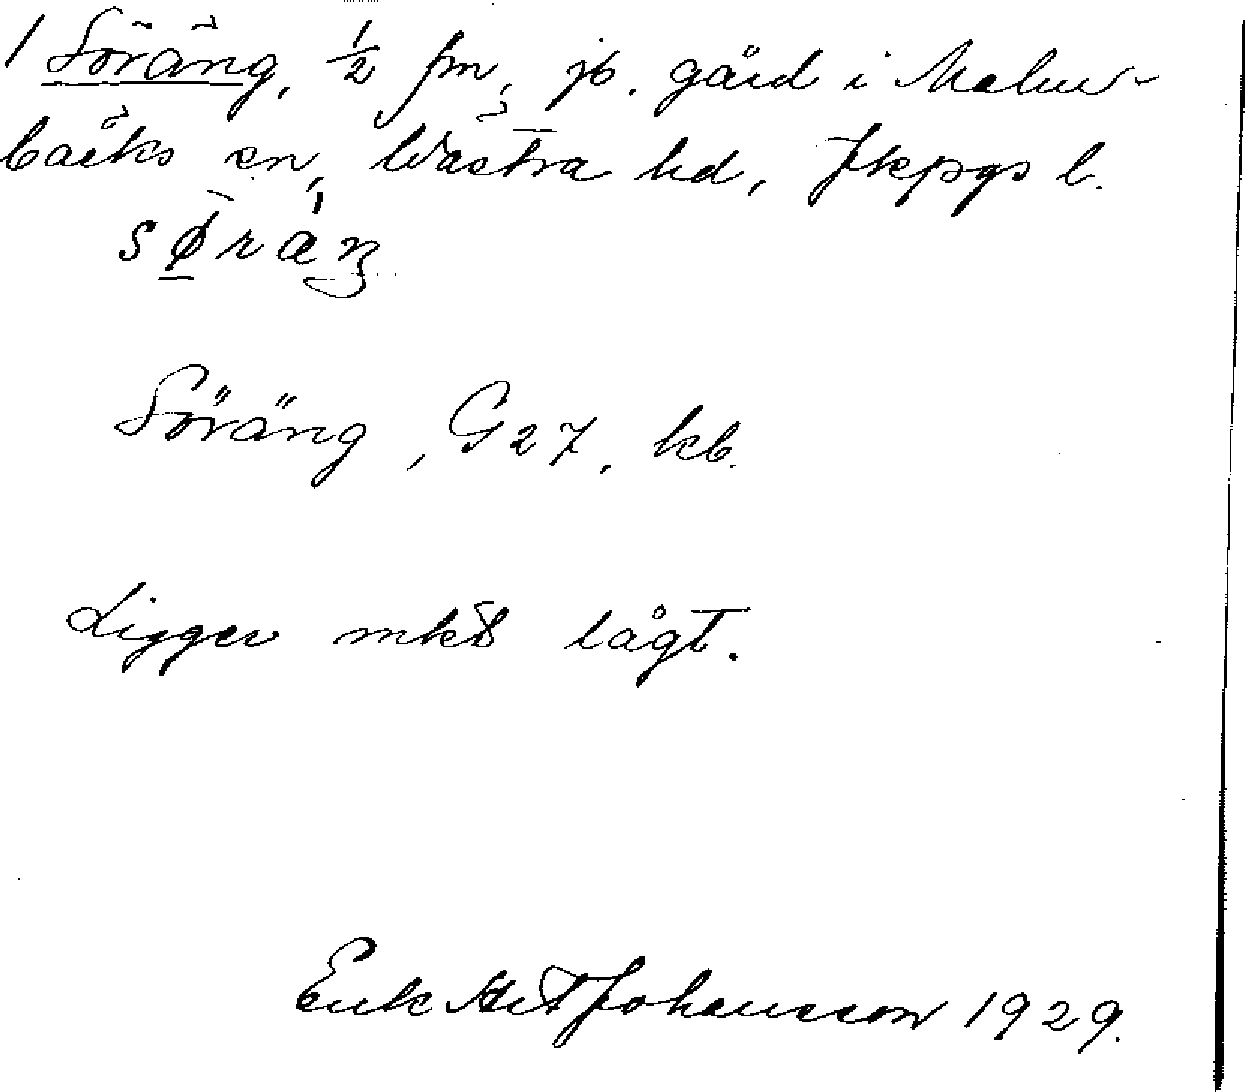 1 Söräng, ½ fm, jb. gård i Malm-
bäks sn, Västra hd, Jkpgs l.
Söräng, G27, kb.
Ligger mkt lågt.
Erik Johansson 1929.